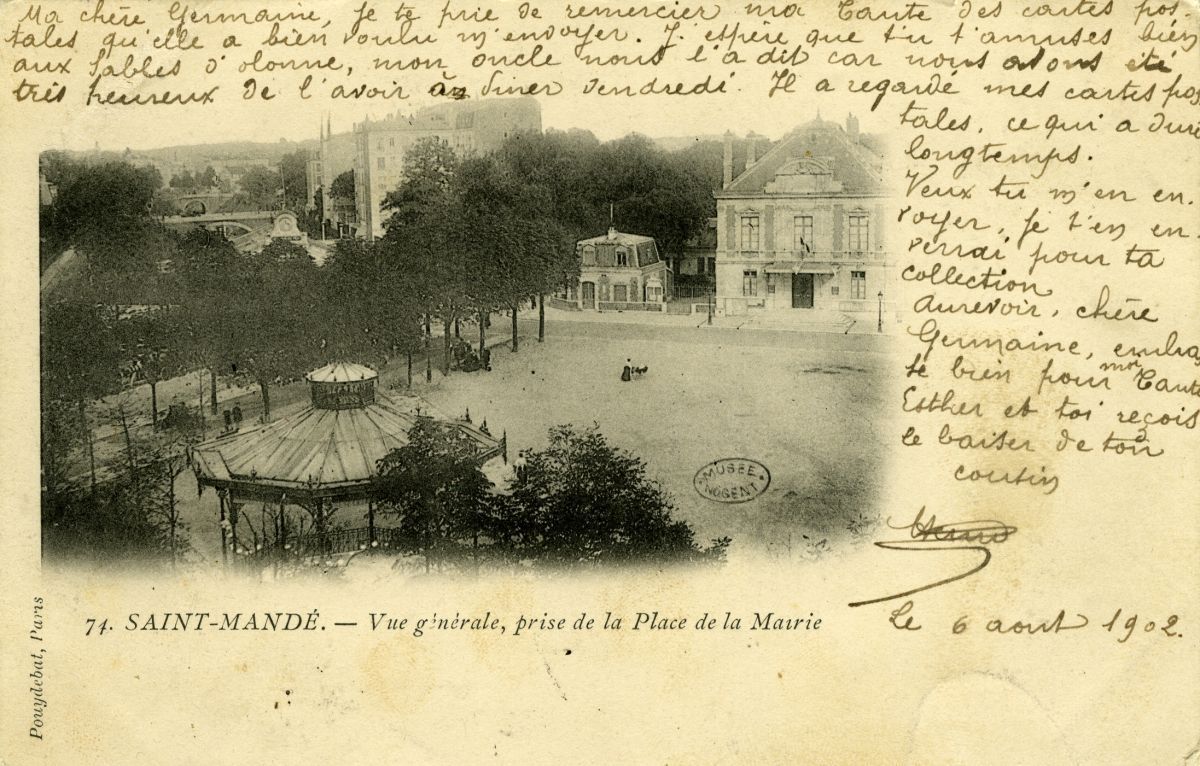 Ma chère Germaine, Je te prie de remercier ma Tante des cartes pos-
tales qu'elle a bien voulu m'envoyer. J'espère que tu t'amuses bien
aux Sables d'olonne, mon oncle nous l'a dit car nous avons été
très heureux de l'avoir à diner vendredi. Il a regardé mes cartes pos
tales, ce qui a duré
longtemps.
Veux tu m'en en-
voyer, Je t'en en-
verrai pour ta
collection
aurevoir, chère
Germaine, embras
se bien pour moi Tante
Esther et toi reçois
le baiser de ton
cousin
Le 6 aout 1902.
MUSÉE
NOGENT
74. SAINT-MANDÉ. — Vue générale, prise de la Place de la Mairie
Pouydebat, Paris